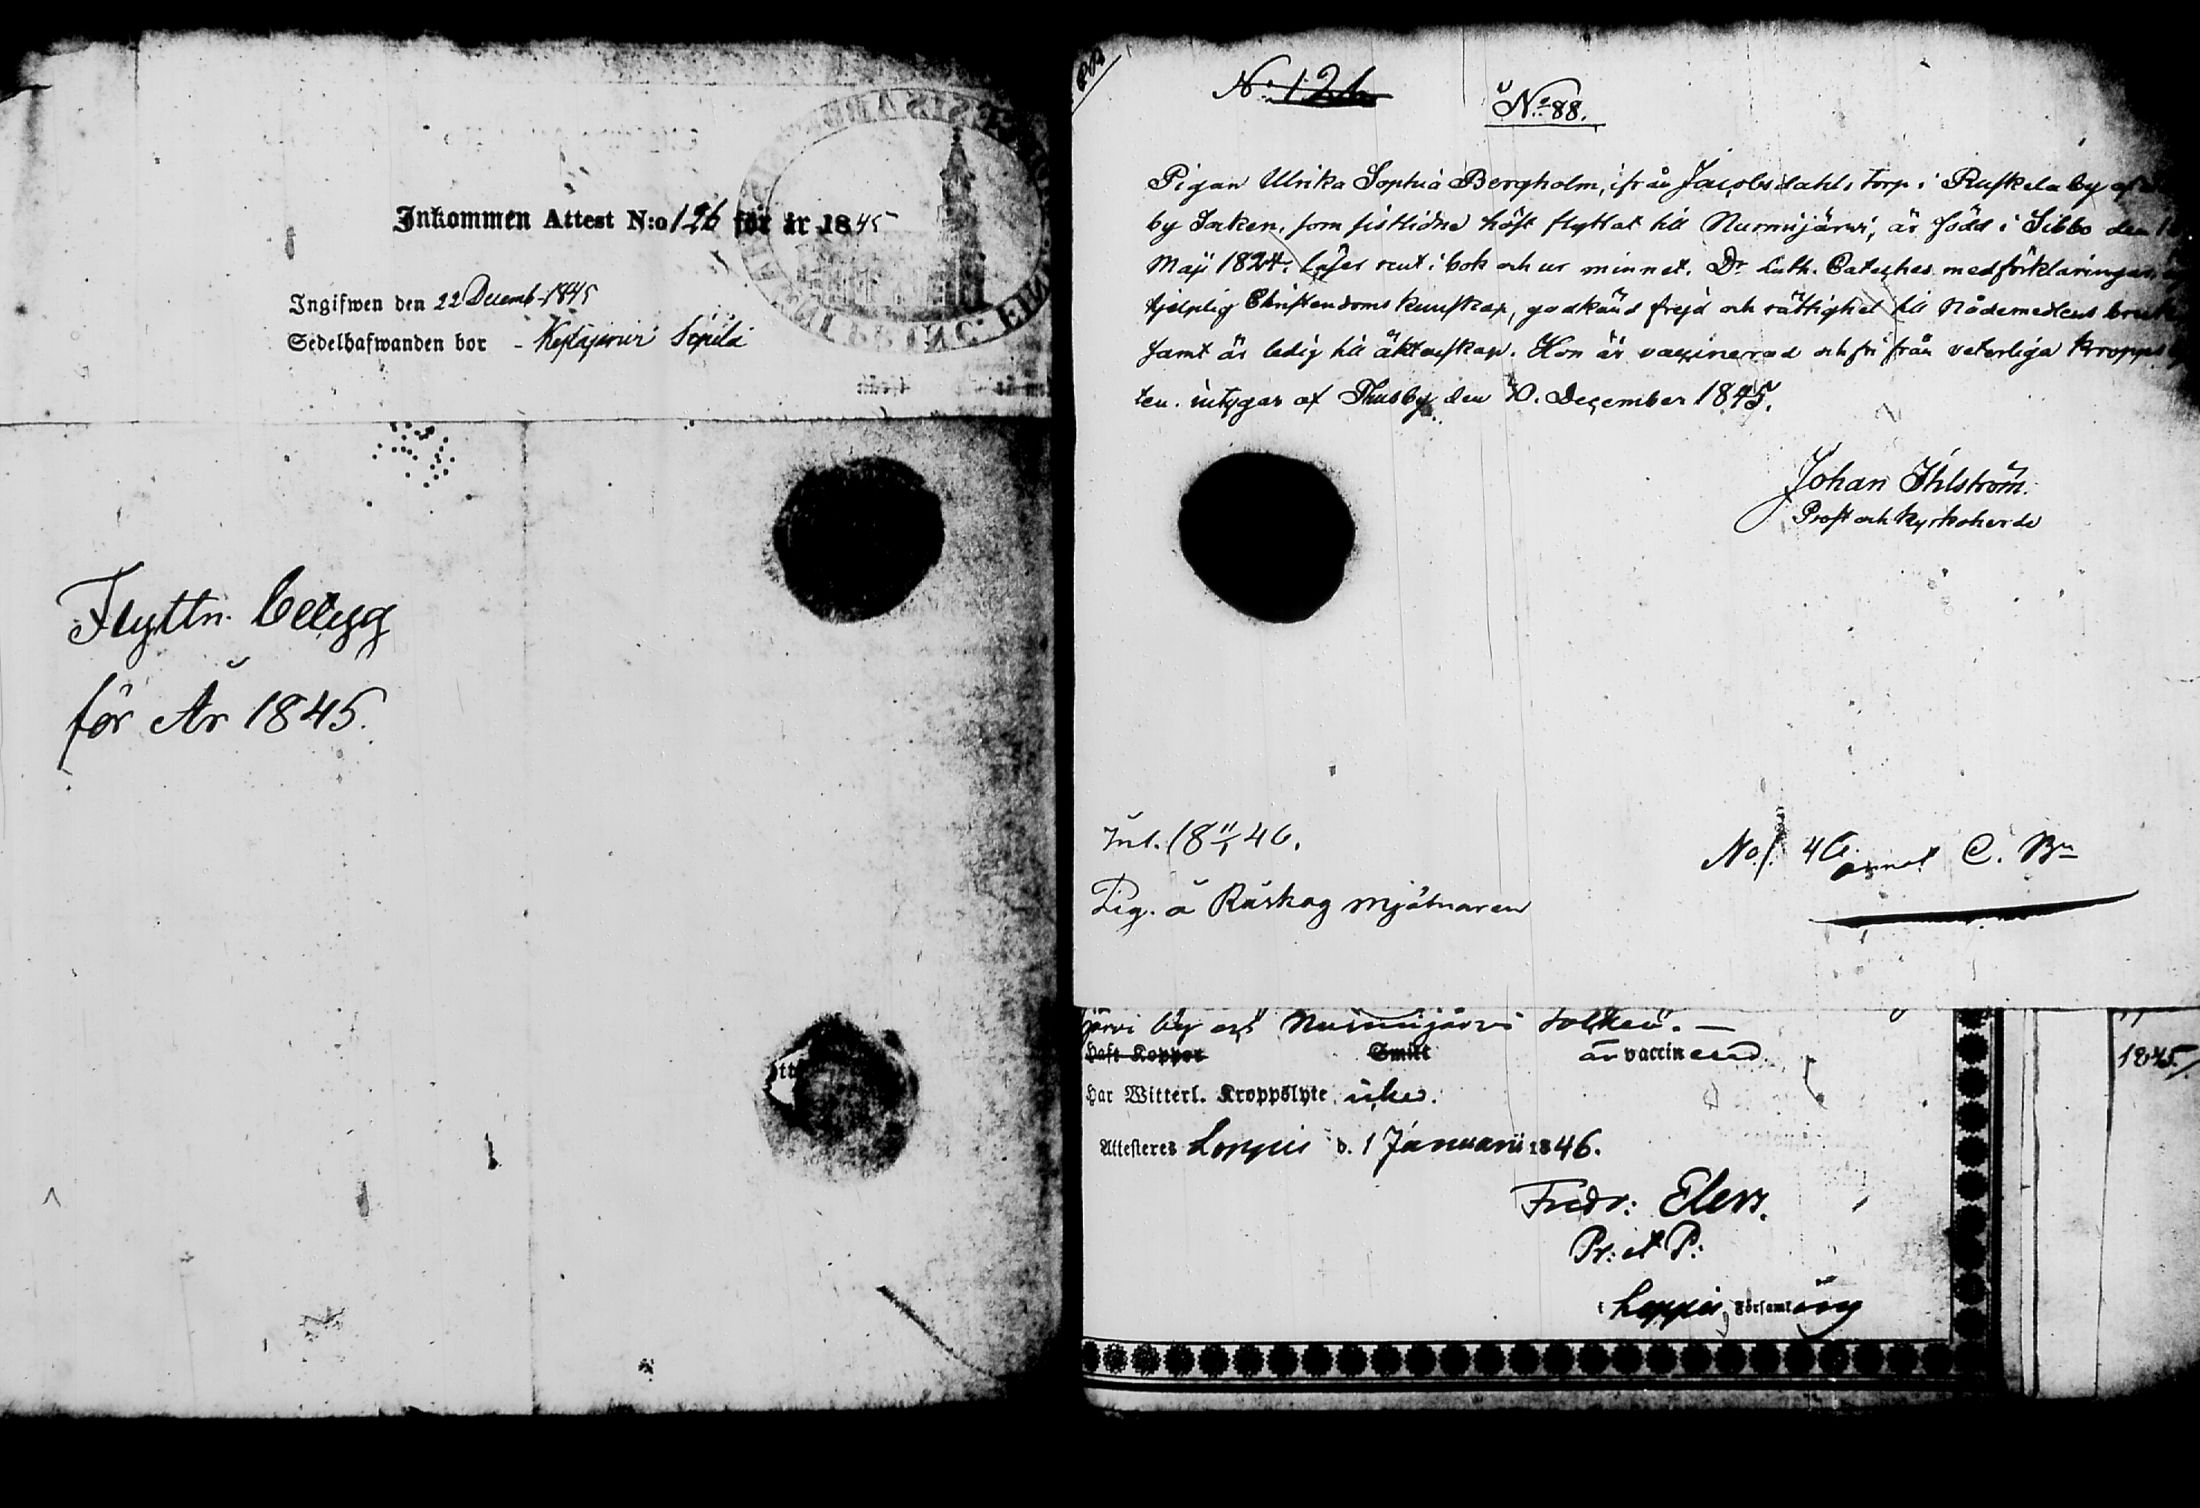 Inkommen Attest N:o 126 för år 1845
Ingifwen den 22 Decemb. 1845
Sedelhafwanden bor - Sepilä
Flyttn. betyg
för År 1845.
No 126
No 88.
Pigan Ulrika Sophia Bergholm, ifrån Jacobsdahls torp i Ruskela by af
by Socken, som sistlidne höst flyttat till Nurmijärvi, är född i Sibbo den
Maji 1824, läser rent i bok och ur minnet. Dr Luth. Cateches med förklaringar,
hjelplig Christendoms kunskap, godkänd frejd och rättighet till Nådemedlens
samt är ledig till äktenskap. Hon är vaccinerad och fri från veterliga kropps
ten. intygar af Thusby den 10. December 1845.
Johan Ihlström.
Prost och Kyrkoherde
Inl. 18 11/1 46.
No 1. 46 C. Bm
Pig. å Råskog Mjölnaren
järvi by och Nurmijärvi Socken. —
Haft Koppor Smitt är vaccinerad.
Har Witterl. Kroppslyte icke.
Attesteres Loppis d. 1 Januarii 1846.
Fredr: Elers.
Pr: et P:
i Loppis Församling
1845.